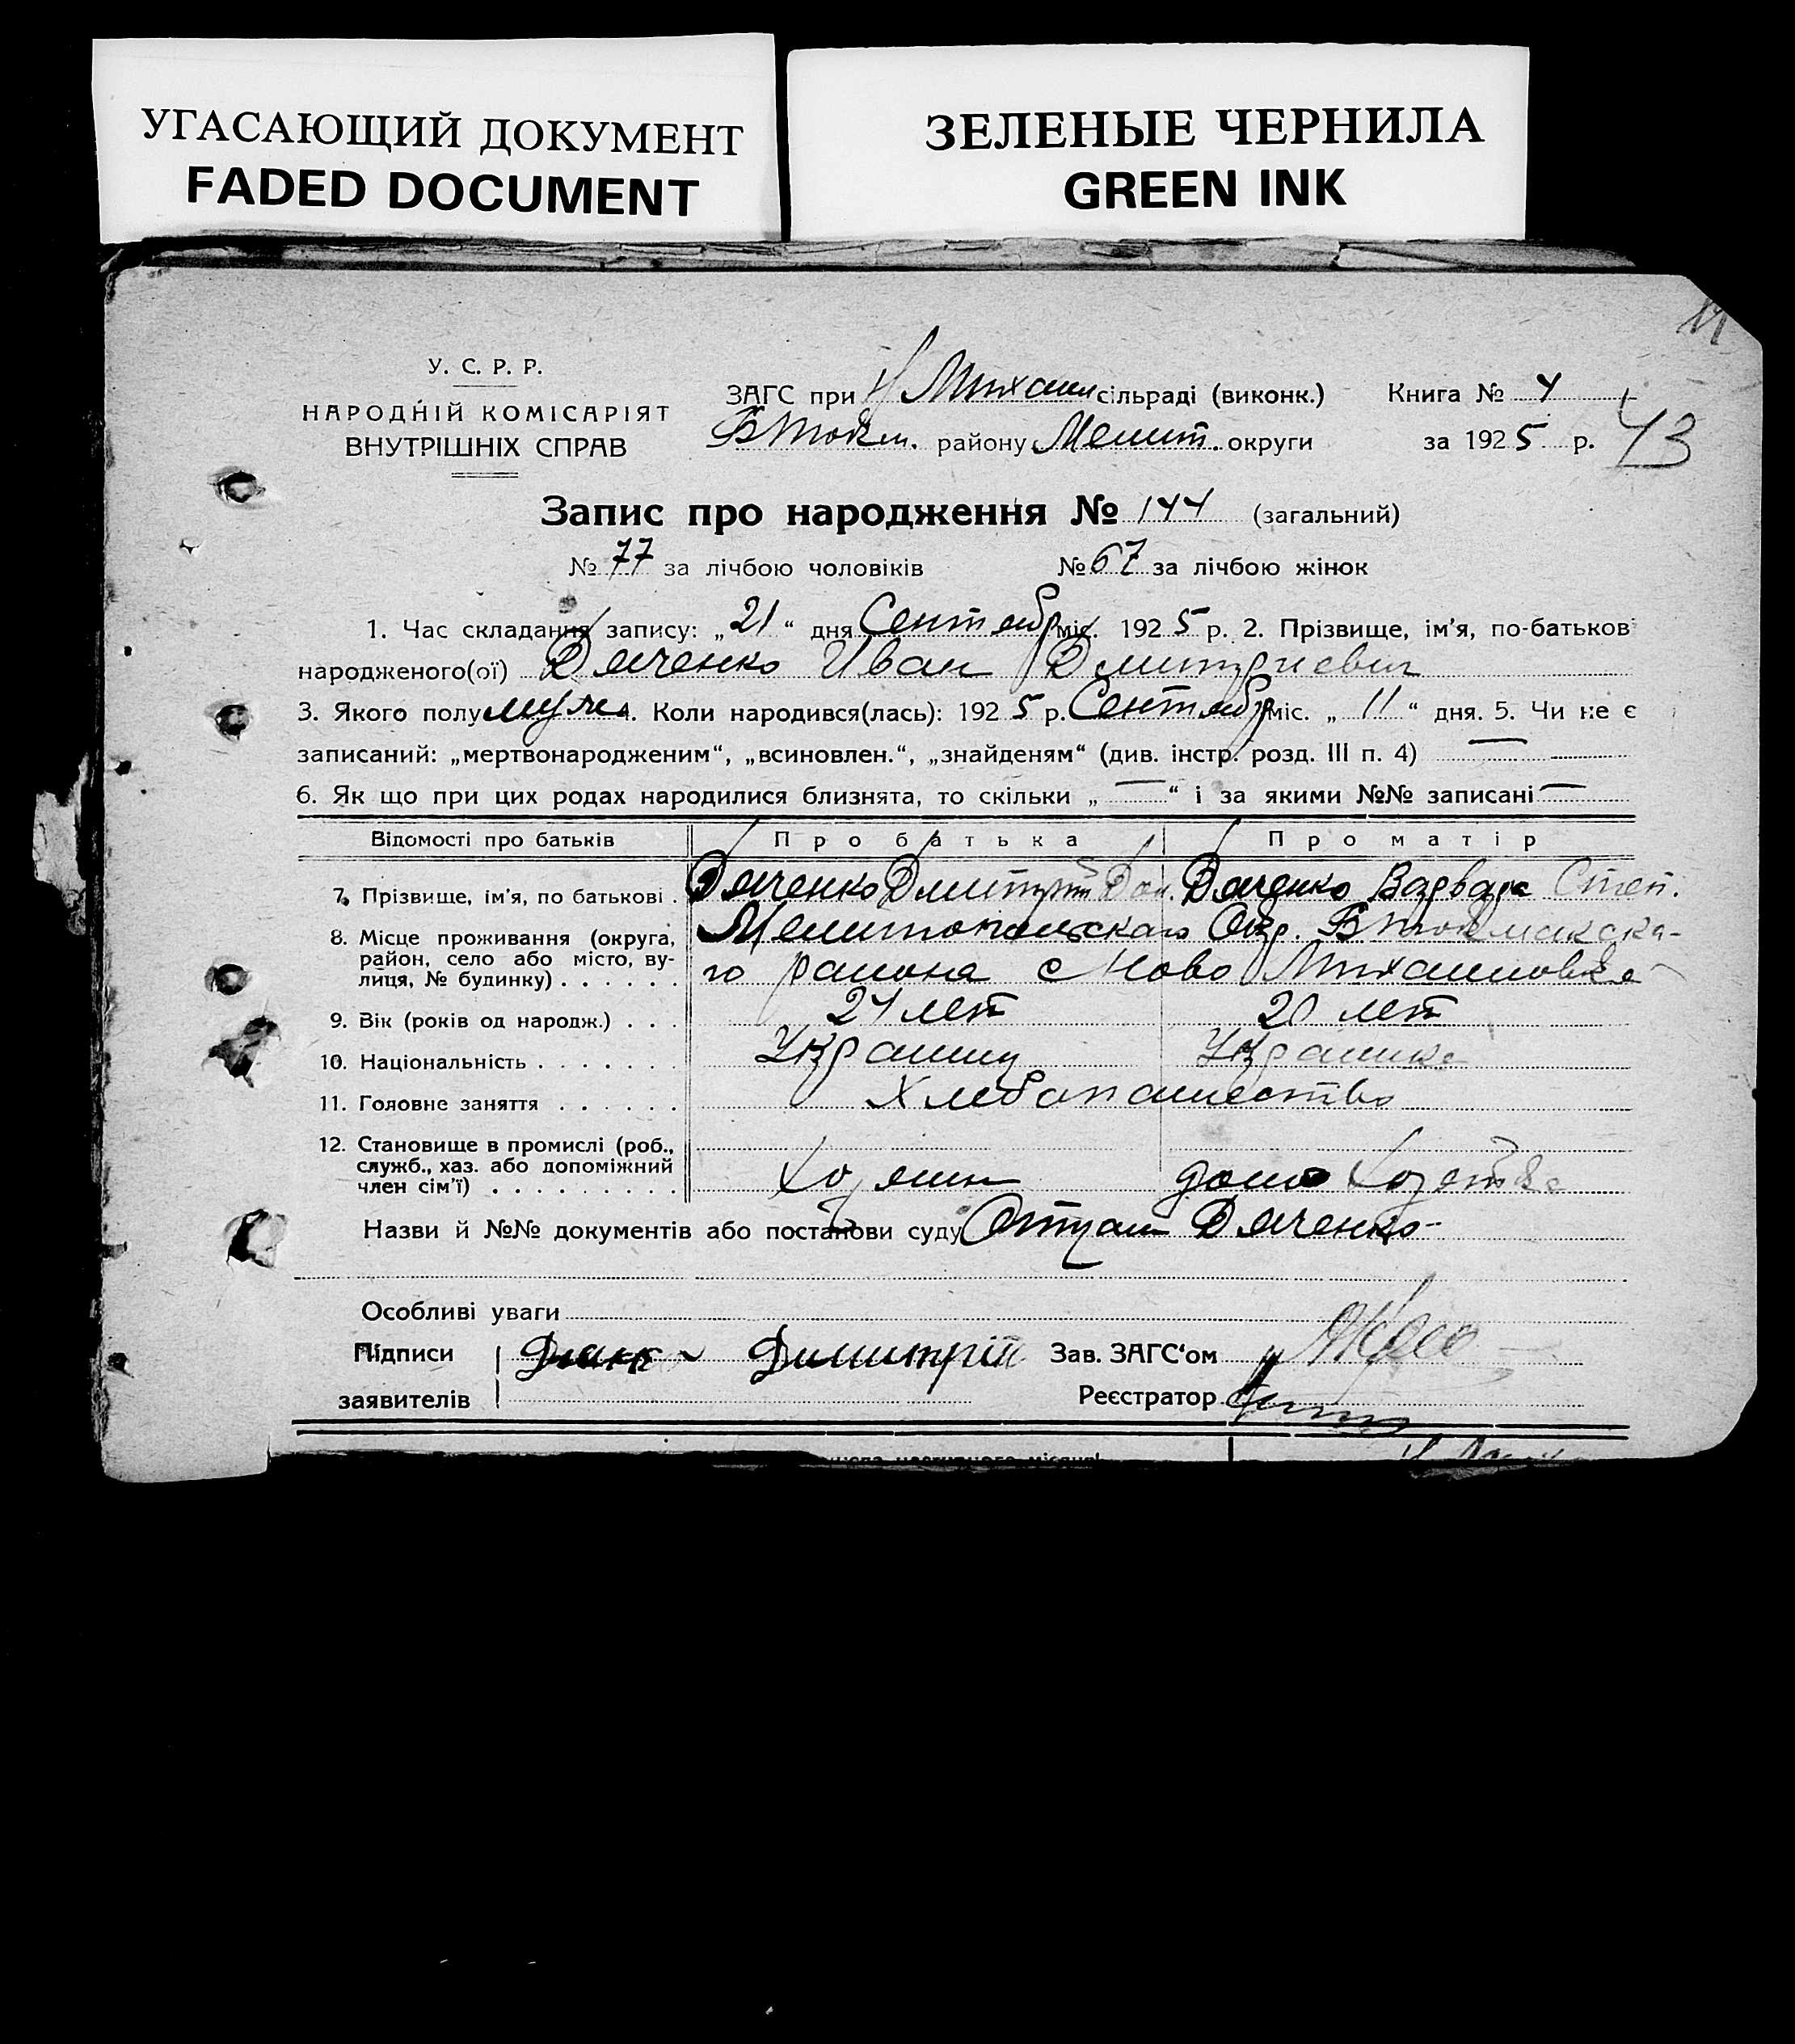 УГАСАЮЩИЙ ДОКУМЕНТ
FADED DOCUMENT
ЗЕЛЕНЫЕ ЧЕРНИЛА
GREEN INK
У. С. Р. Р.
НАРОДНІЙ КОМІСАРІЯТ
ВНУТРІШНІХ СПРАВ
ЗАГС при Н Михаил сільраді (виконк.) Книга № 4
БТокм. району Мелит. округи за 1925 р. 43
Запис про народження № 144 (загальний)
№ 77 за лічбою чоловіків № 67 за лічбою жінок
1. Час складання запису: „21“ дня Сентябр міс. 1925 р. 2. Прізвище, ім'я, по-батьков
народженого(ої) Дяченко Иван Дмитриевич
3. Якого полу муж 4. Коли народився(лась): 1925 р. Сентябр міс. „11“ дня. 5. Чи не є
записаний: „мертвонародженим“, „всиновлен.“, „знайденям“ (див. інстр. розд. III п. 4) —
6. Як що при цих родах народилися близнята, то скільки „—“ і за якими №№ записані —
Відомості про батьків Про батька Про матір
7. Прізвище, ім'я, по батькові . Дяченко Дмитрий Дан. Дяченко Варвара Степ.
8. Місце проживання (округа, район, село або місто, вулиця, № будинку) . . . . . . Мелитопольскаго Окр. БТокмакска-
го района с Ново Михаиловке
9. Вік (років од народж.) . . . 24 лет 20 лет
10. Національність . . . . . . . Украинц Украинка
11. Головне заняття . . . . . . Хлебопашество
12. Становище в промислі (роб., служб., хаз. або допоміжний член сім'ї) . . . . . . . . . Хозяин домо Хозяйка
Назви й №№ документів або постанови суду Дяченко-
Особливі уваги
Підписи Димитрій Зав. ЗАГС‘ом
заявителів Реєстратор
числа наступного місяця